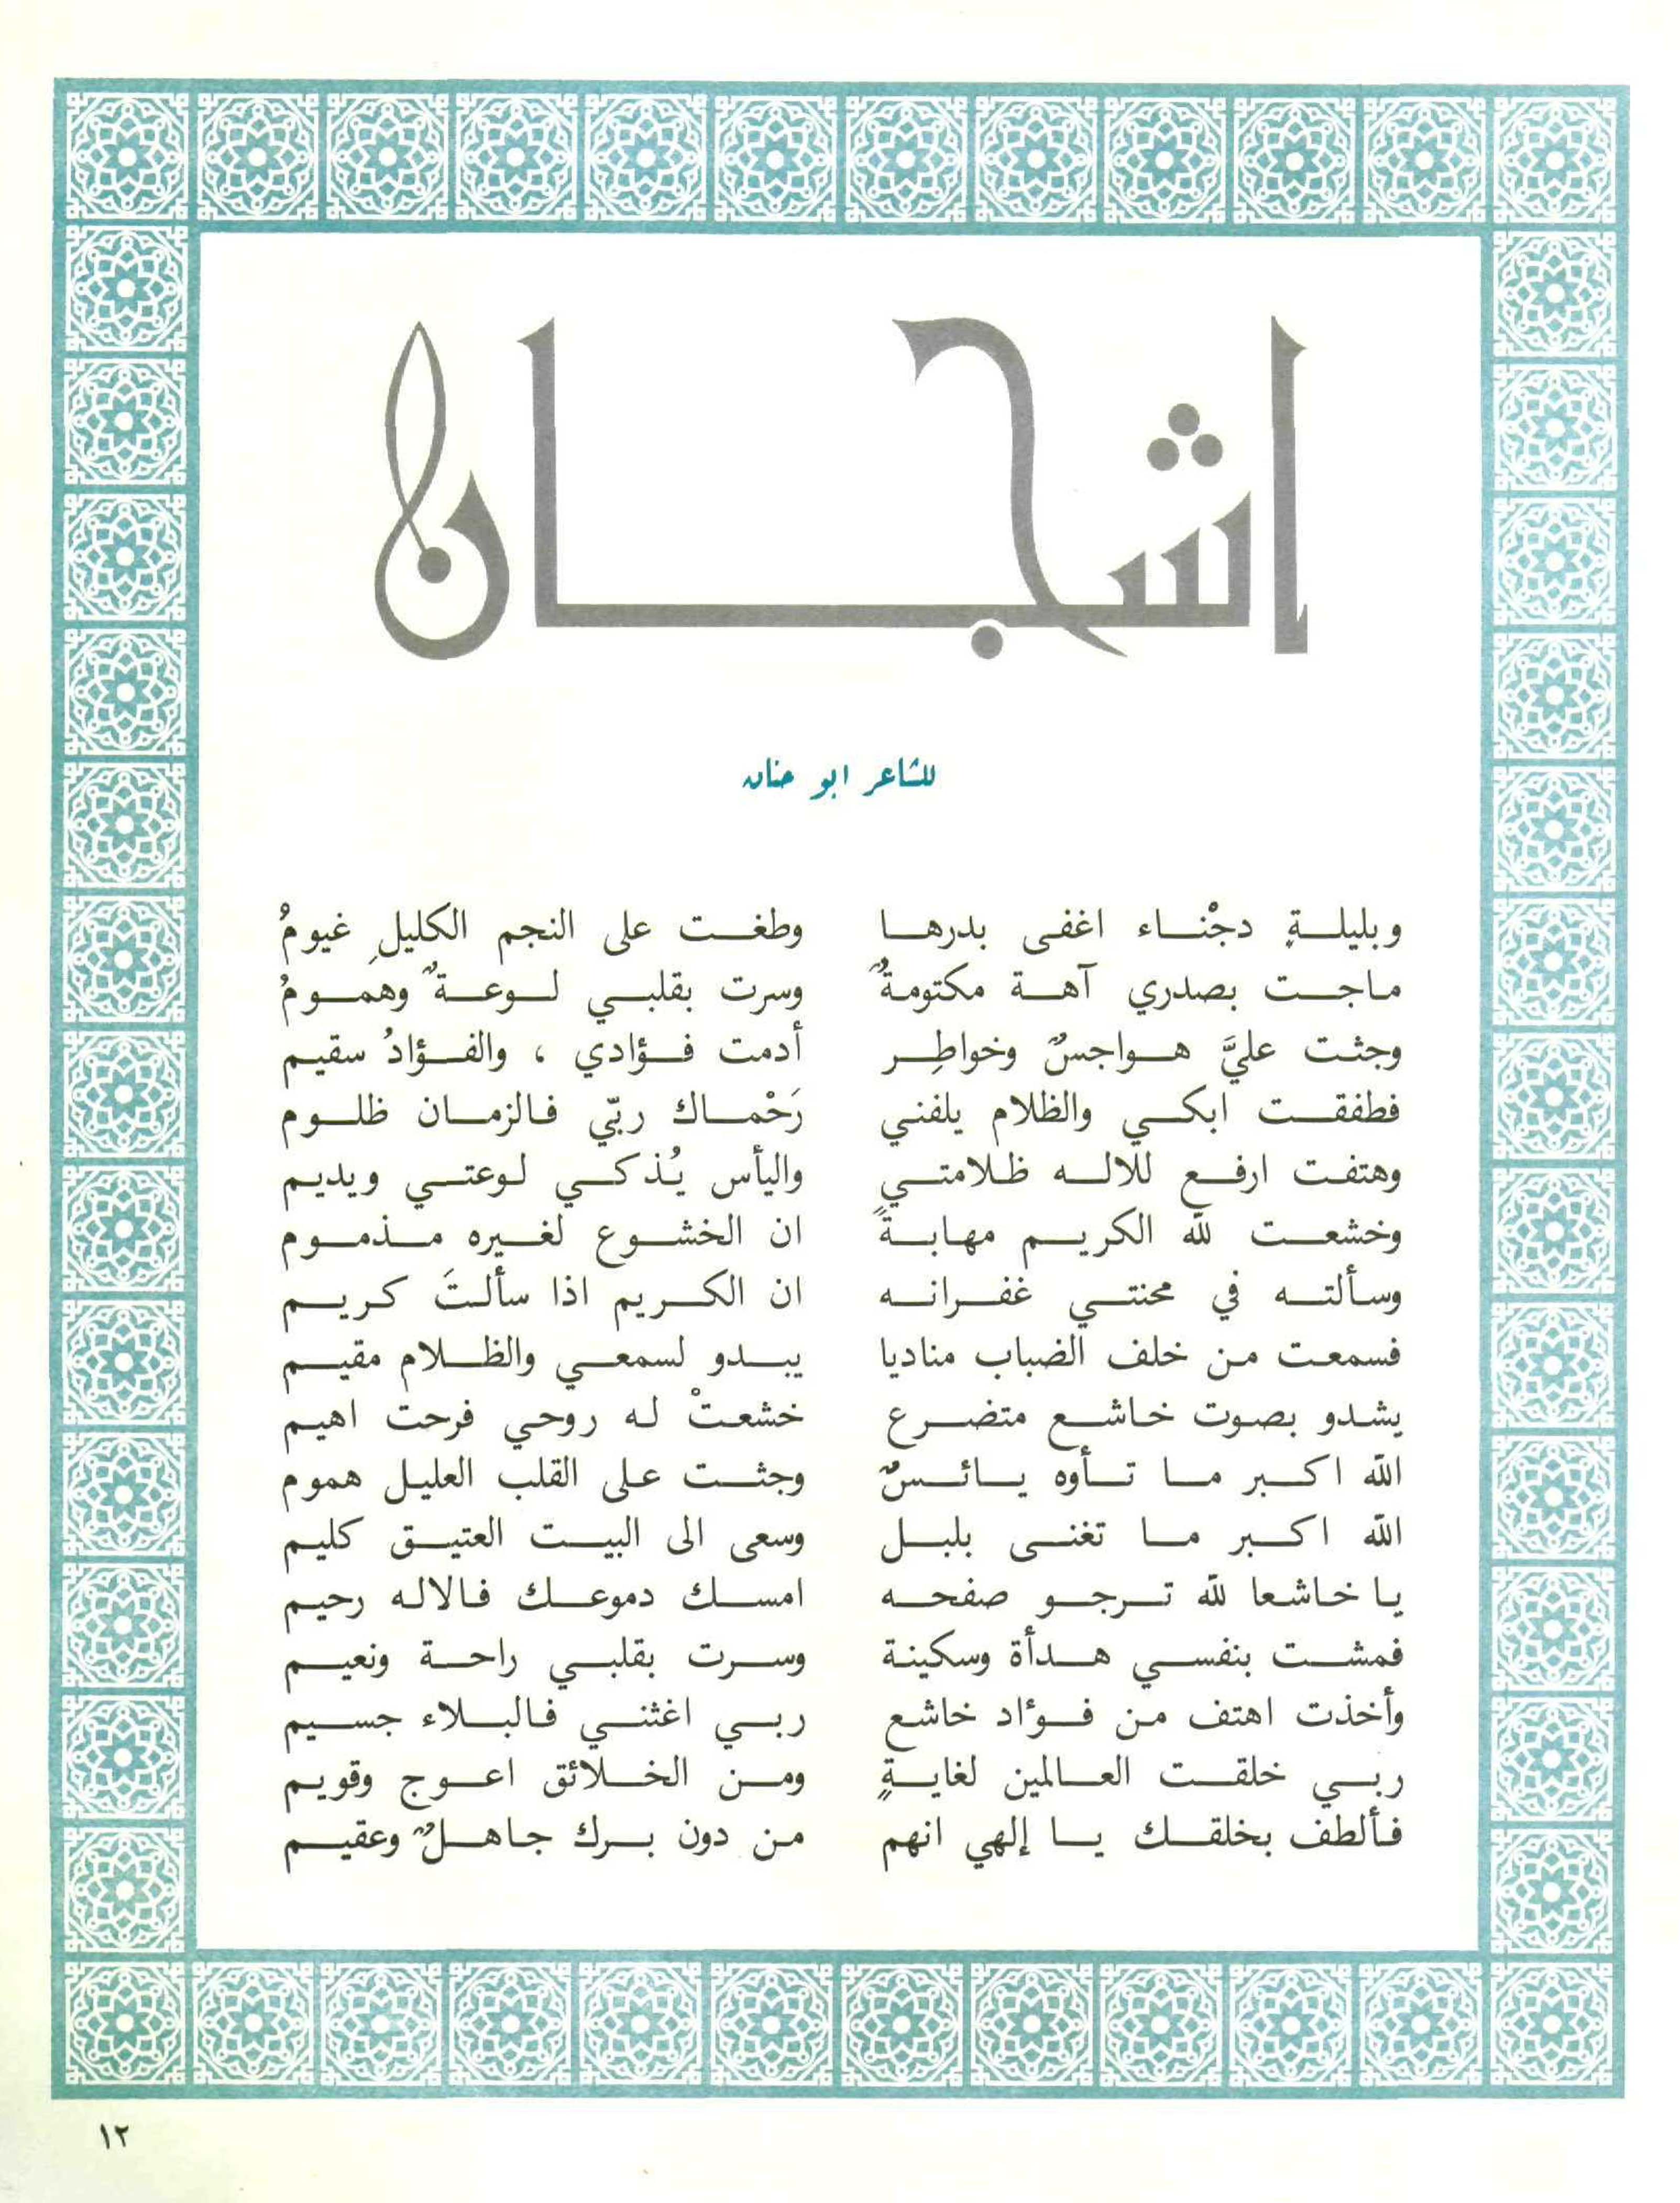 اشجان
للشاعر ابو حنان
وبليلةٍ دجْناء اغفى بدرها وطغت على النجم الكليلِ غيومُ
ماجت بصدري آهة مكتومةٌ وسرت بقلبي لوعةٌ وهمومُ
وجثت عليَّ هواجسٌ وخواطِر أدمت فؤادي ، والفؤادُ سقيم
فطفقت ابكي والظلام يلفني رَحْماك ربّي فالزمان ظلوم
وهتفت ارفع للاله ظلامتي واليأس يُذكي لوعتي ويديم
وخشعت لله الكريم مهابةً ان الخشوع لغيره مذموم
وسألته في محنتي غفرانه ان الكريم اذا سألتَ كريم
فسمعت من خلف الضباب مناديا يبدو لسمعي والظلام مقيم
يشدو بصوت خاشع متضرع خشعتْ له روحي فرحت اهيم
الله اكبر ما تأوه يائسٌ وجثت على القلب العليل هموم
الله اكبر ما تغنى بلبل وسعى الى البيت العتيق كليم
يا خاشعا لله ترجو صفحه امسك دموعك فالاله رحيم
فمشت بنفسي هدأة وسكينة وسرت بقلبي راحة ونعيم
وأخذت اهتف من فؤاد خاشع ربي اغثني فالبلاء جسيم
ربي خلقت العالمين لغايةٍ ومن الخلائق اعوج وقويم
فألطف بخلقك يا إلهي انهم من دون برك جاهلٌ وعقيم
١٢